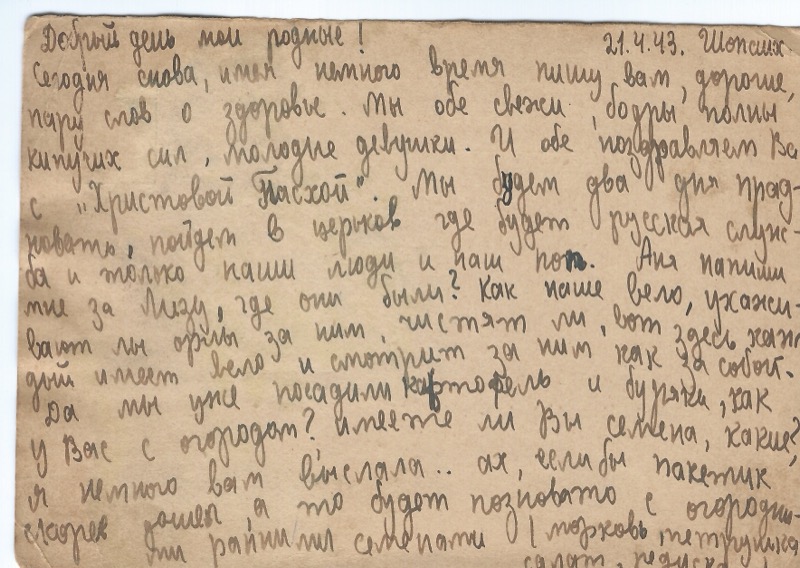 Добрый день мои родные!
21.4.43. Шопсих
Сегодня снова, имея немного время пишу вам, дорогие,
пару слов о здоровье. Мы обе свежи, бодры, полны
кипучих сил, молодые девушки. И обе поздравляем Ва
с "Христовой Пасхой". Мы будем два дня празд-
новать, пойдем в церьков где будет русская служ-
ба и только наши люди и наш поп. Аня напиши
мне за Лизу, где они были? Как наше вело, ухажи-
вают мы орлы за ним, чистят ли, вот здесь каж
дый имеет вело и смотрит за ним как за собой.
Да мы уже посадили картофель и буряки, как
у Вас с огородом? имеете ли Вы семена, какие?
я немного вам выслала.. ах, если бы пакетик
скорее дошел, а то будет позновато с огородни-
ми ранними семенами (морковь, петрушка
салат, редиска)